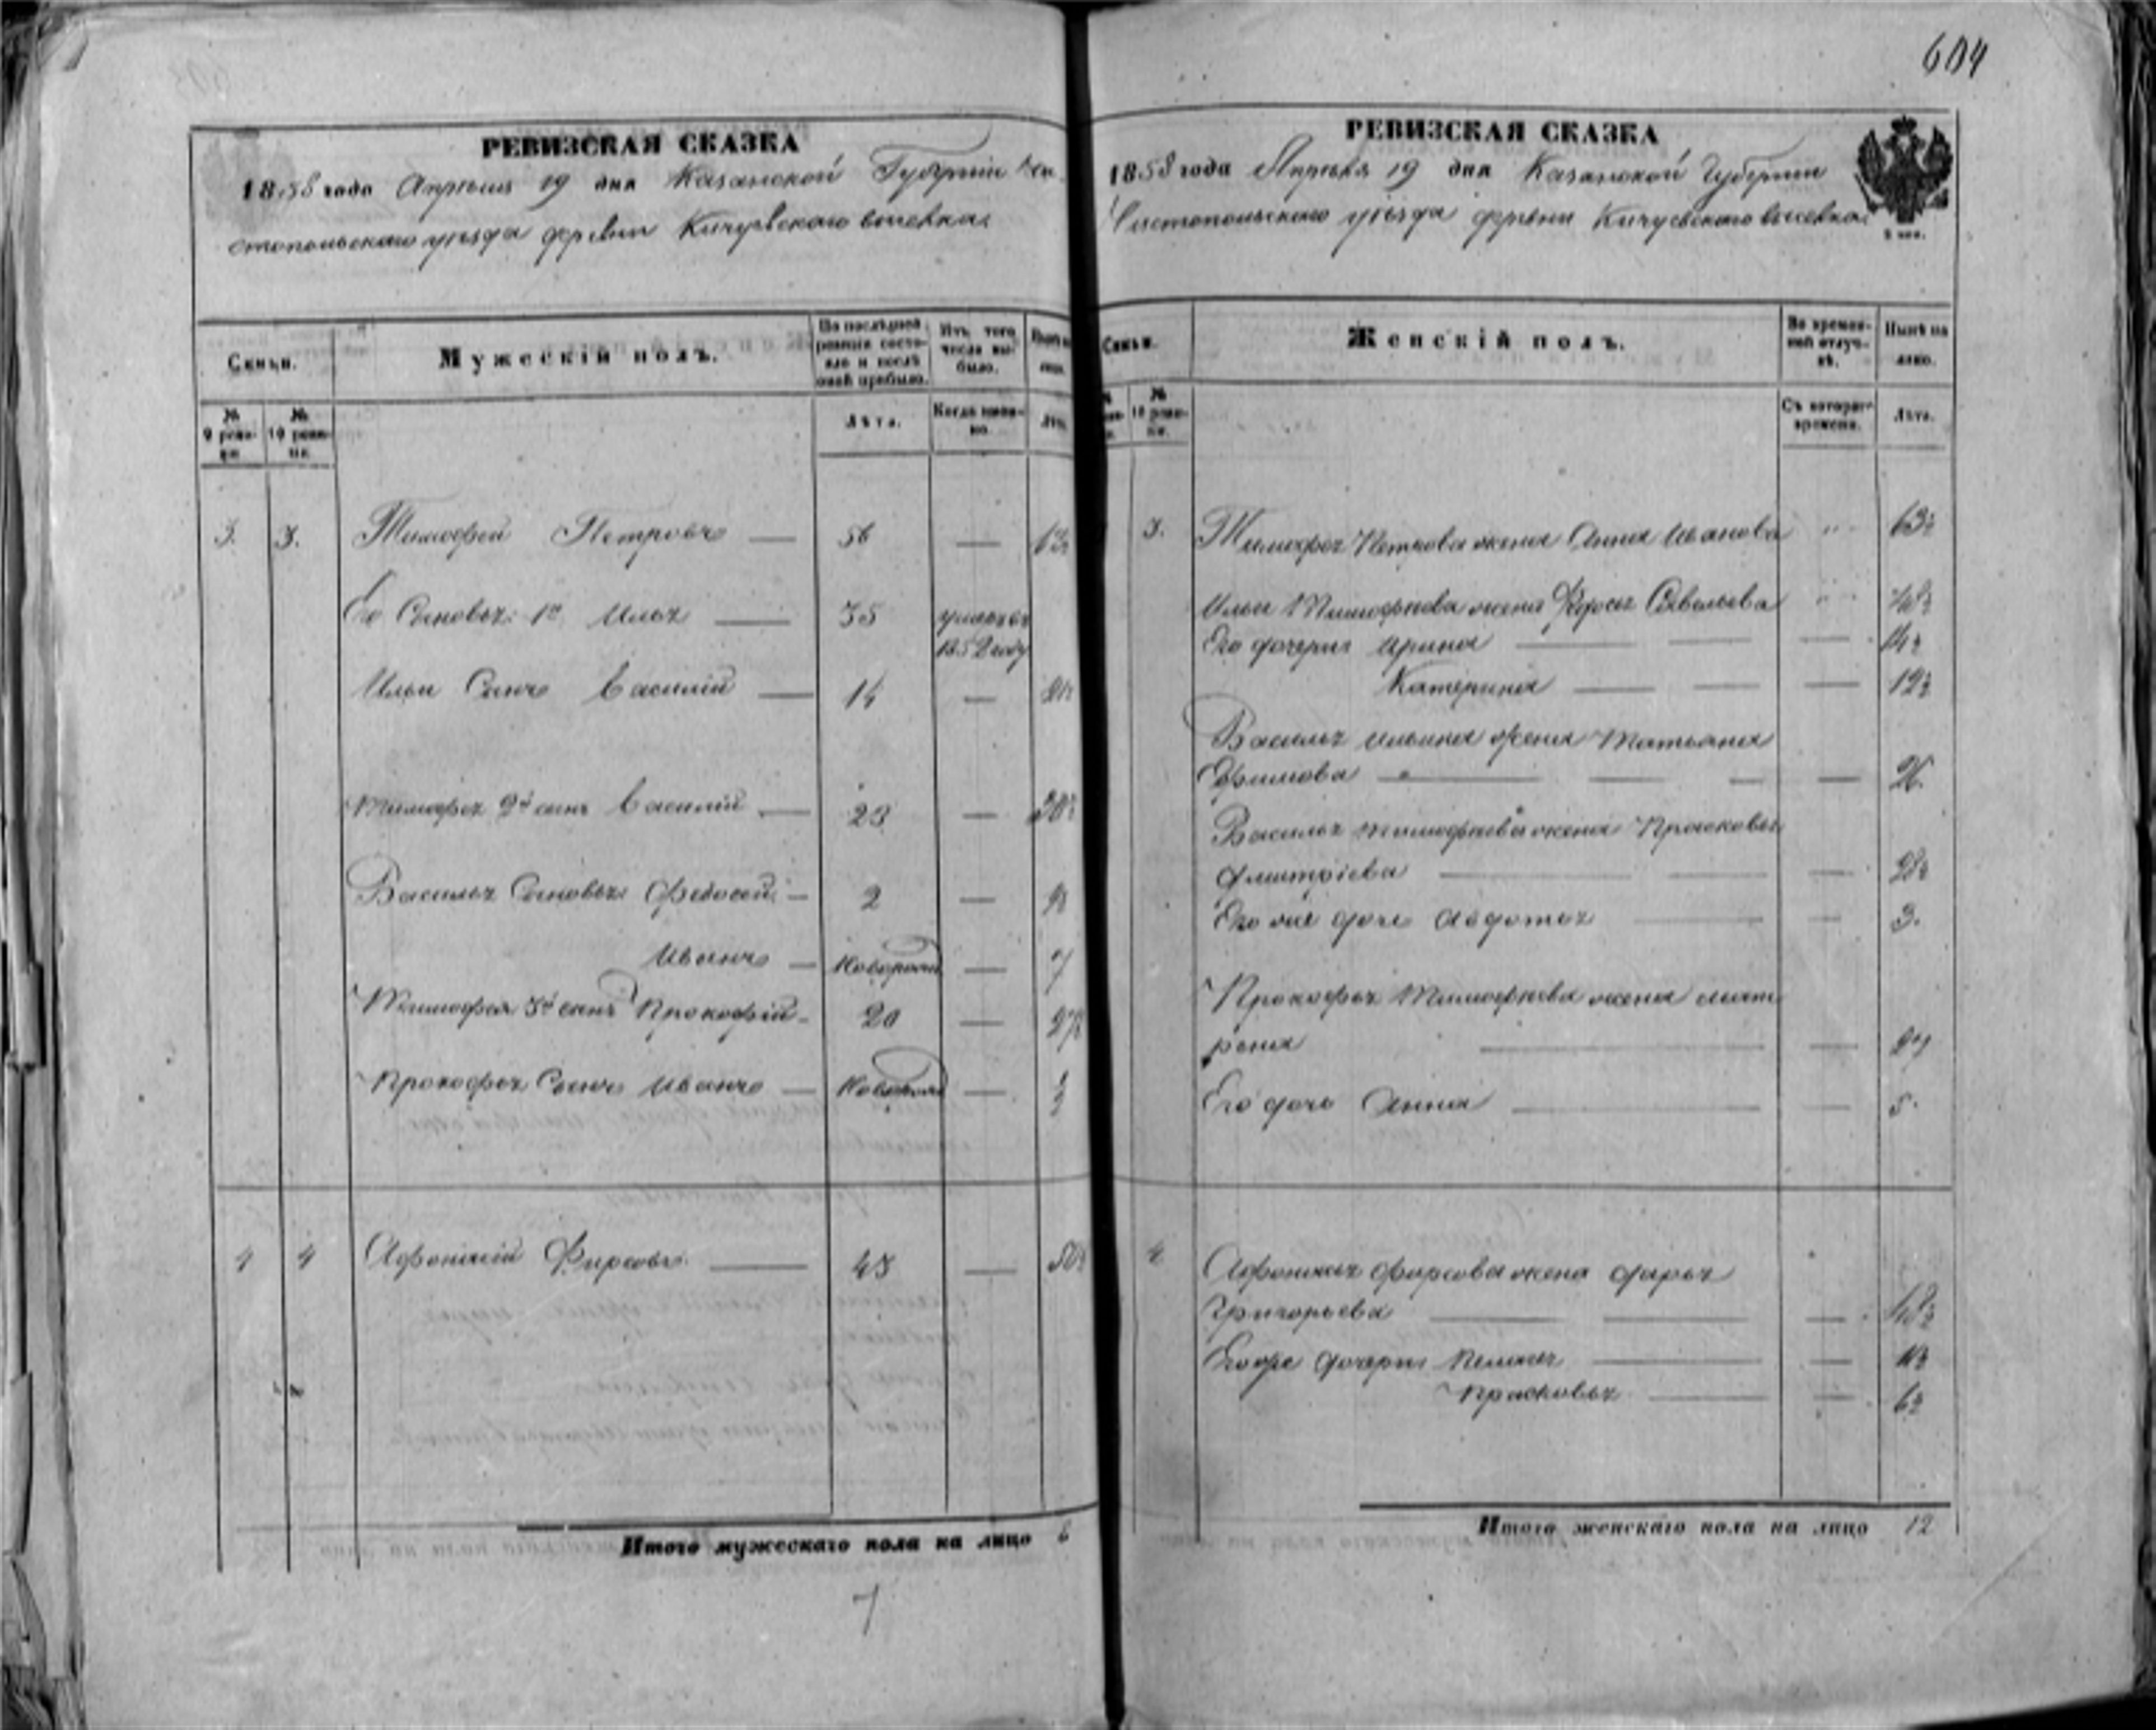 604
РЕВИЗСКАЯ СКАЗКА
1858 года Апреля 19 дня Казанской Губернии Чи
стопольскаго уѣзда деревни Кичуевскаго выселка.
Семьи.
Мужескій полъ.
По послѣдней ревизіи состояло и послѣ оной прибыло.
Изъ того числа выбыло.
Нынѣ на лицо.
№ 9 ревизіи.
№ 10 ревизіи.
Лѣта.
Когда именно.
Лѣта.
3. 3. Тимофей Петровъ — 56 — 63½
Его Сыновья: 1й Илья — 35 умеръ въ
1852 году
Ильи Сынъ Василій — 14 — 21½
Тимофея 2й сынъ Василій — 23 — 30½
Василья Сыновья: Федосей — 2 — 9½
Иванъ — Новорожд — 7
Тимофея 3й сынъ Прокофій — 20 — 27½
Прокофья Сынъ Иванъ — Новорожд — ½
4 4 Афонасій Фирсовъ — 43 — 50½
Итого мужескаго пола на лицо 6
7
РЕВИЗСКАЯ СКАЗКА
1858 года Апреля 19 дня Казанской Губернии
Чистопольскаго уѣзда деревни Кичуевскаго выселка
Семьи.
Женскій полъ.
Во временной отлучкѣ.
Нынѣ на лицо.
№ 10 ревизіи.
Съ котораго времени.
Лѣта.
3. Тимофея Петрова жена Анна Иванова " 63½
Ильи Тимофеева жена Савельева " 48½
Его дочери Ирина — 14½
Катерина — 12½
Василья Ильина жена Татьяна
Ефимова — 21.
Василья Тимофеева жена Прасковья
Дмитріева — 28½
Его же дочь Авдотья — 3.
Прокофья Тимофеева жена Мат
рена — 27
Его дочь Анна — 5.
4 Афонасья Фирсова жена Дарья
Григорьева — 48½
Его же дочери Пелагея — 11½
Прасковья — 6½
Итого женскаго пола на лицо 12